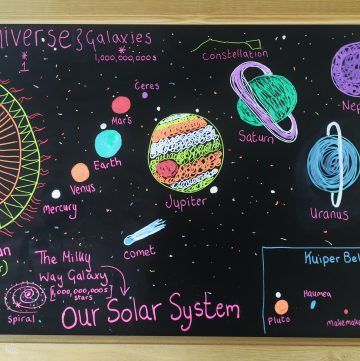 niverse & Galaxies
* 1
* 1,000,000,000s
Constellation
Ceres
Mars
Earth
Venus
Mercury
Jupiter
Saturn
Nep
Uranus
Comet
The Milky
Way Galaxy
1,000,000,000s
stars
Spiral
Our Solar System
Kuiper Bel
Pluto
Haumea
Makemake